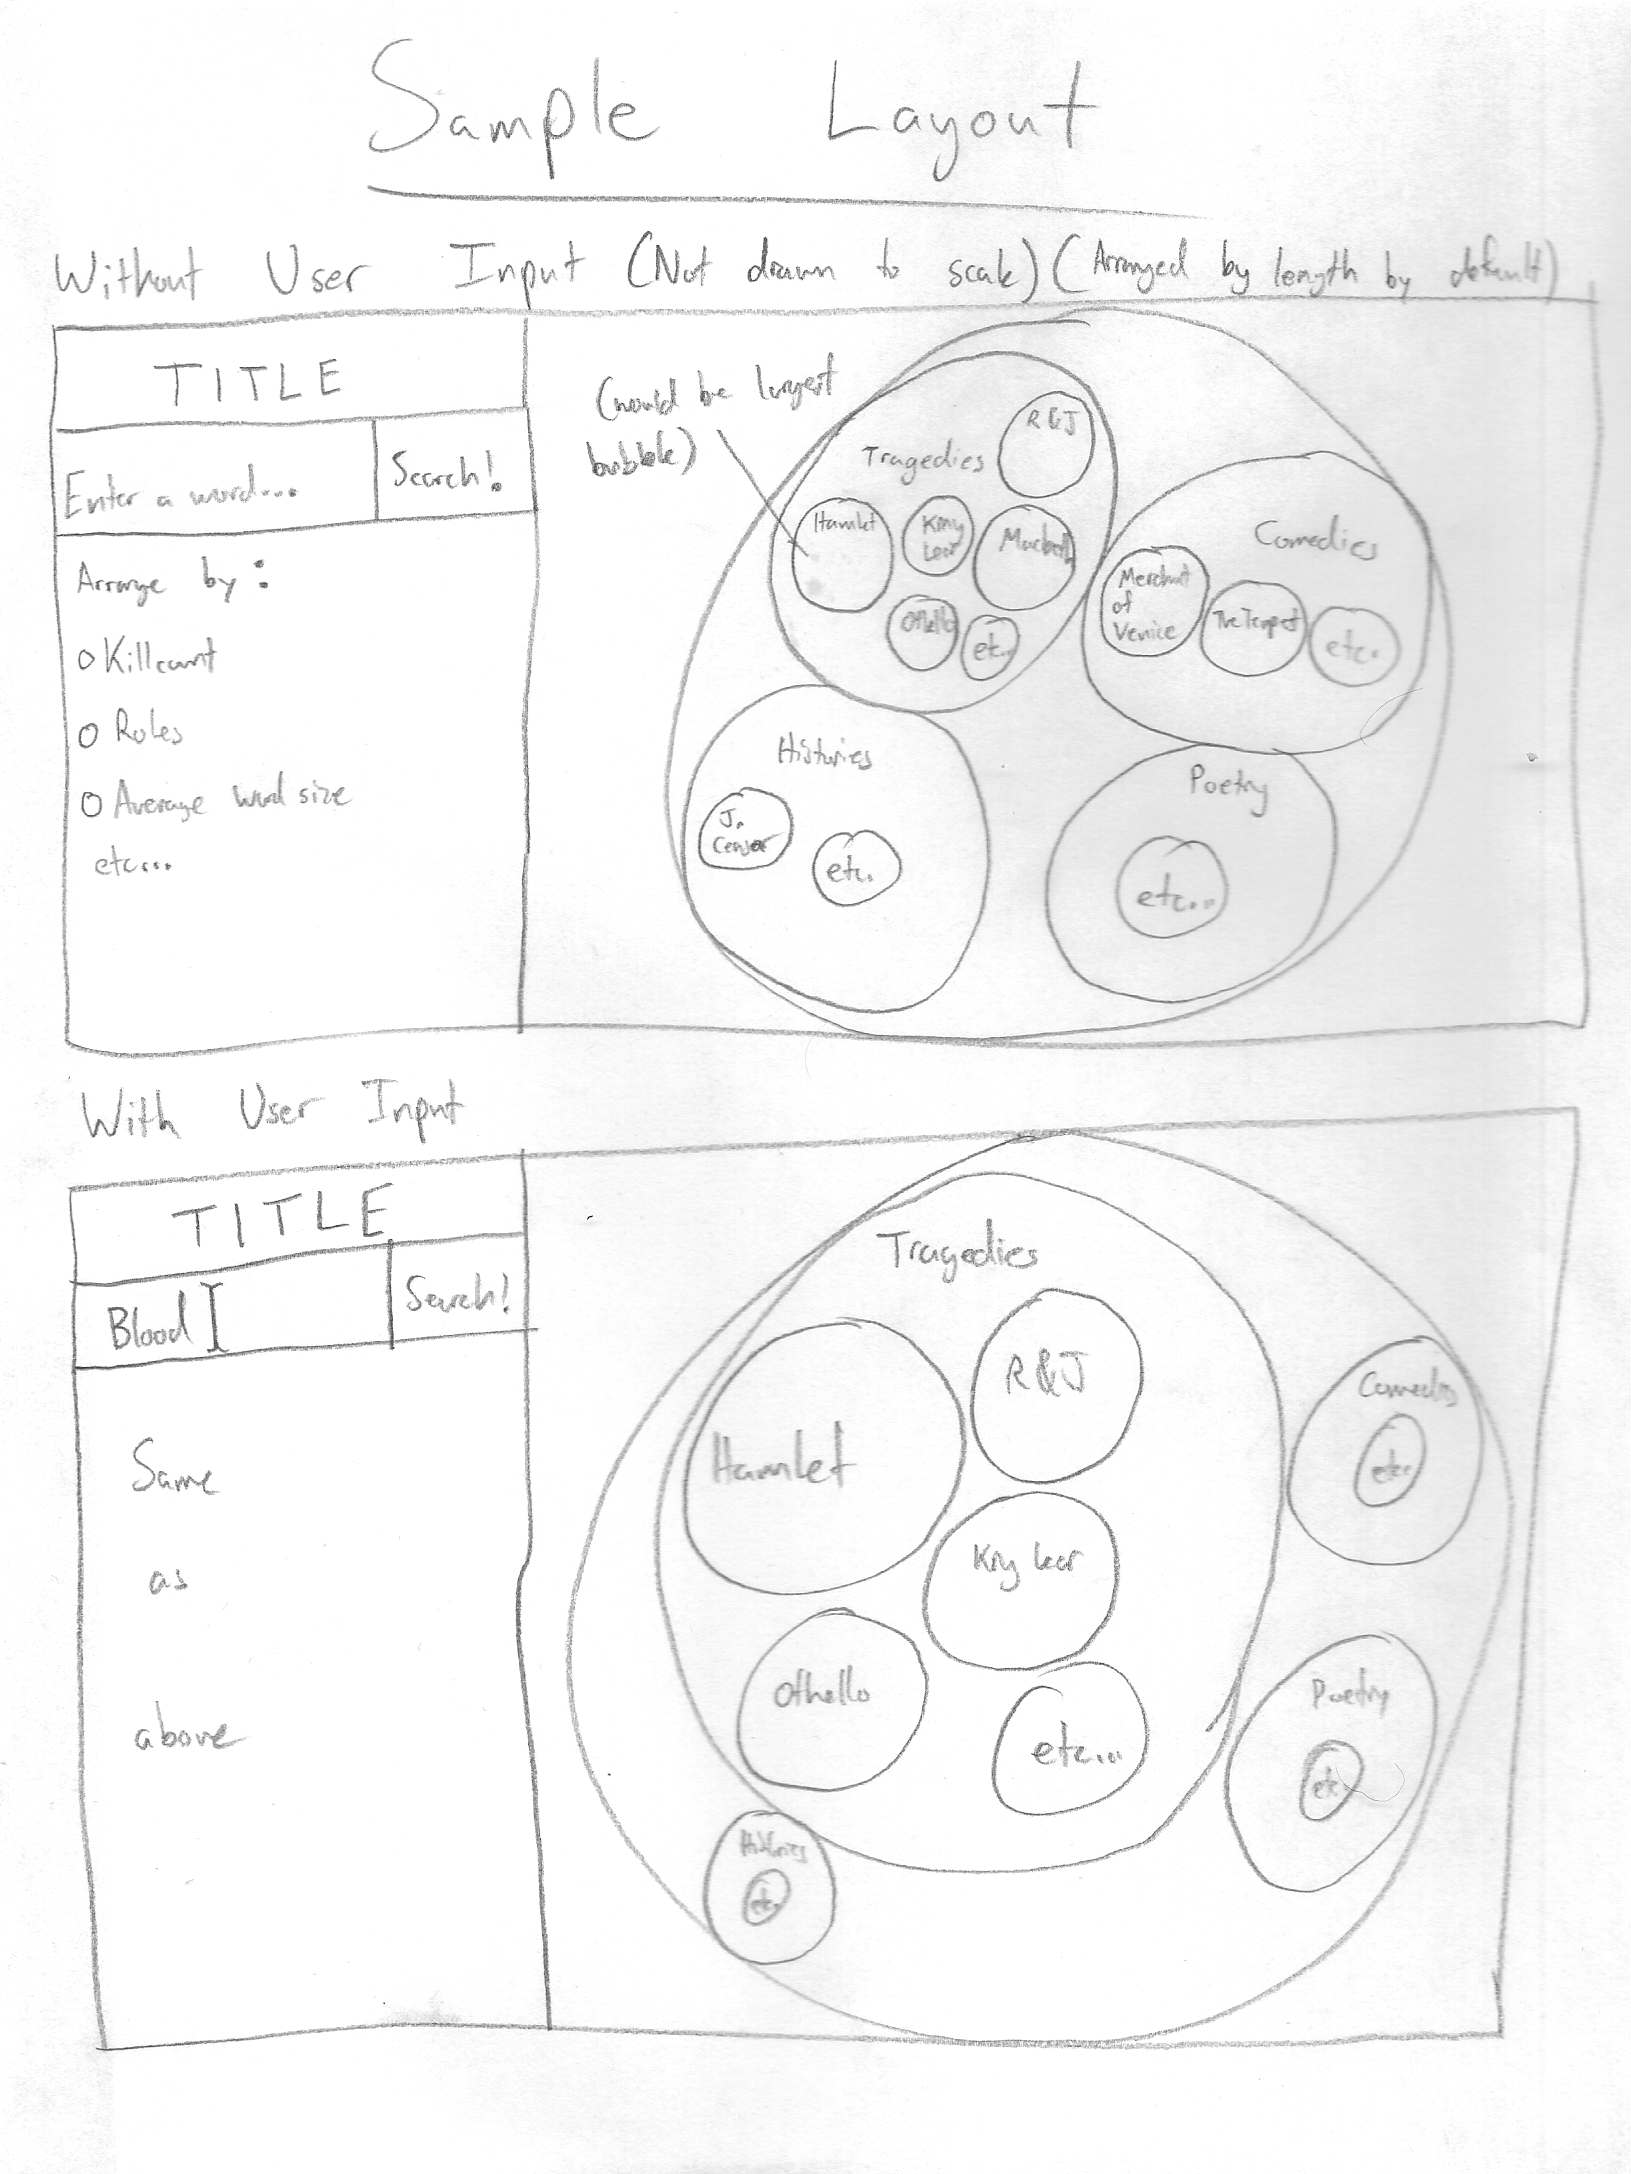 Sample Layout
Without User Input (Not drawn to scale) (Arranged by length by default)
TITLE
Enter a word...
Search!
Arrange by:
Killcount
Roles
Average word size
etc...
(would be largest
bubble)
Tragedies
R&J
Hamlet
King
Lear
Macbeth
Othello
etc..
Comedies
Merchant
of
Venice
The Tempest
etc..
Histories
J.
Ceasar
etc.
Poetry
etc...
With User Input
TITLE
Blood
Search!
Same
as
above
Tragedies
R&J
Hamlet
King Lear
Othello
etc...
Comedies
etc.
Poetry
etc
Histories
etc.